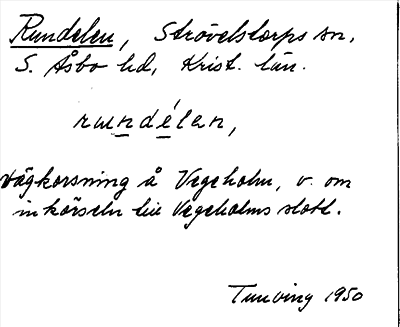 Rundelen, Strövelstorps sn,
S. Åsbo hd, Krist. län.
rundélan,
Vägkorsning å Vegeholm, v. om
inkörseln till Vegeholms slott.
Tunving 1950